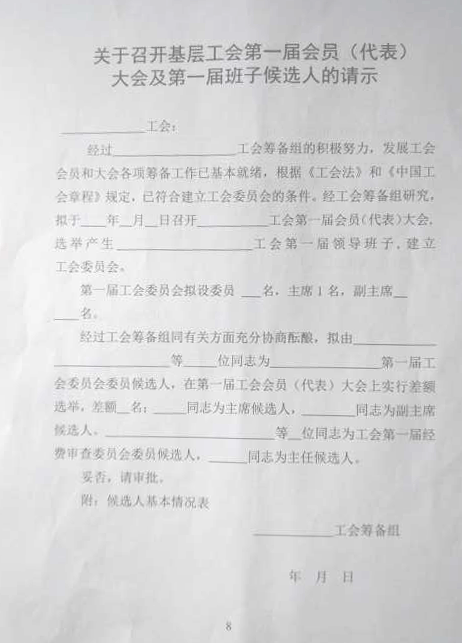 关于召开基层工会第一届会员（代表）
大会及第一届班子候选人的请示
____________工会：
经过__________________工会筹备组的积极努力，发展工会
会员和大会各项筹备工作已基本就绪，根据《工会法》和《中国工
会章程》规定，已符合建立工会委员会的条件。经工会筹备组研究，
拟于____年__月__日召开__________工会第一届会员(代表)大会，
选举产生____________________工会第一届领导班子，建立
工会委员会。
第一届工会委员会拟设委员 ___名，主席 1 名，副主席__
____名。
经过工会筹备组同有关方面充分协商酝酿，拟由____________
________________等____位同志为________________第一届工
会委员会委员候选人，在第一届工会会员（代表）大会上实行差额
选举，差额__名；_____同志为主席候选人，________同志为副主席
候选人。________________________等__位同志为工会第一届经
费审查委员会委员候选人，______同志为主任候选人。
妥否，请审批。
附：候选人基本情况表
____________工会筹备组
年 月 日
8